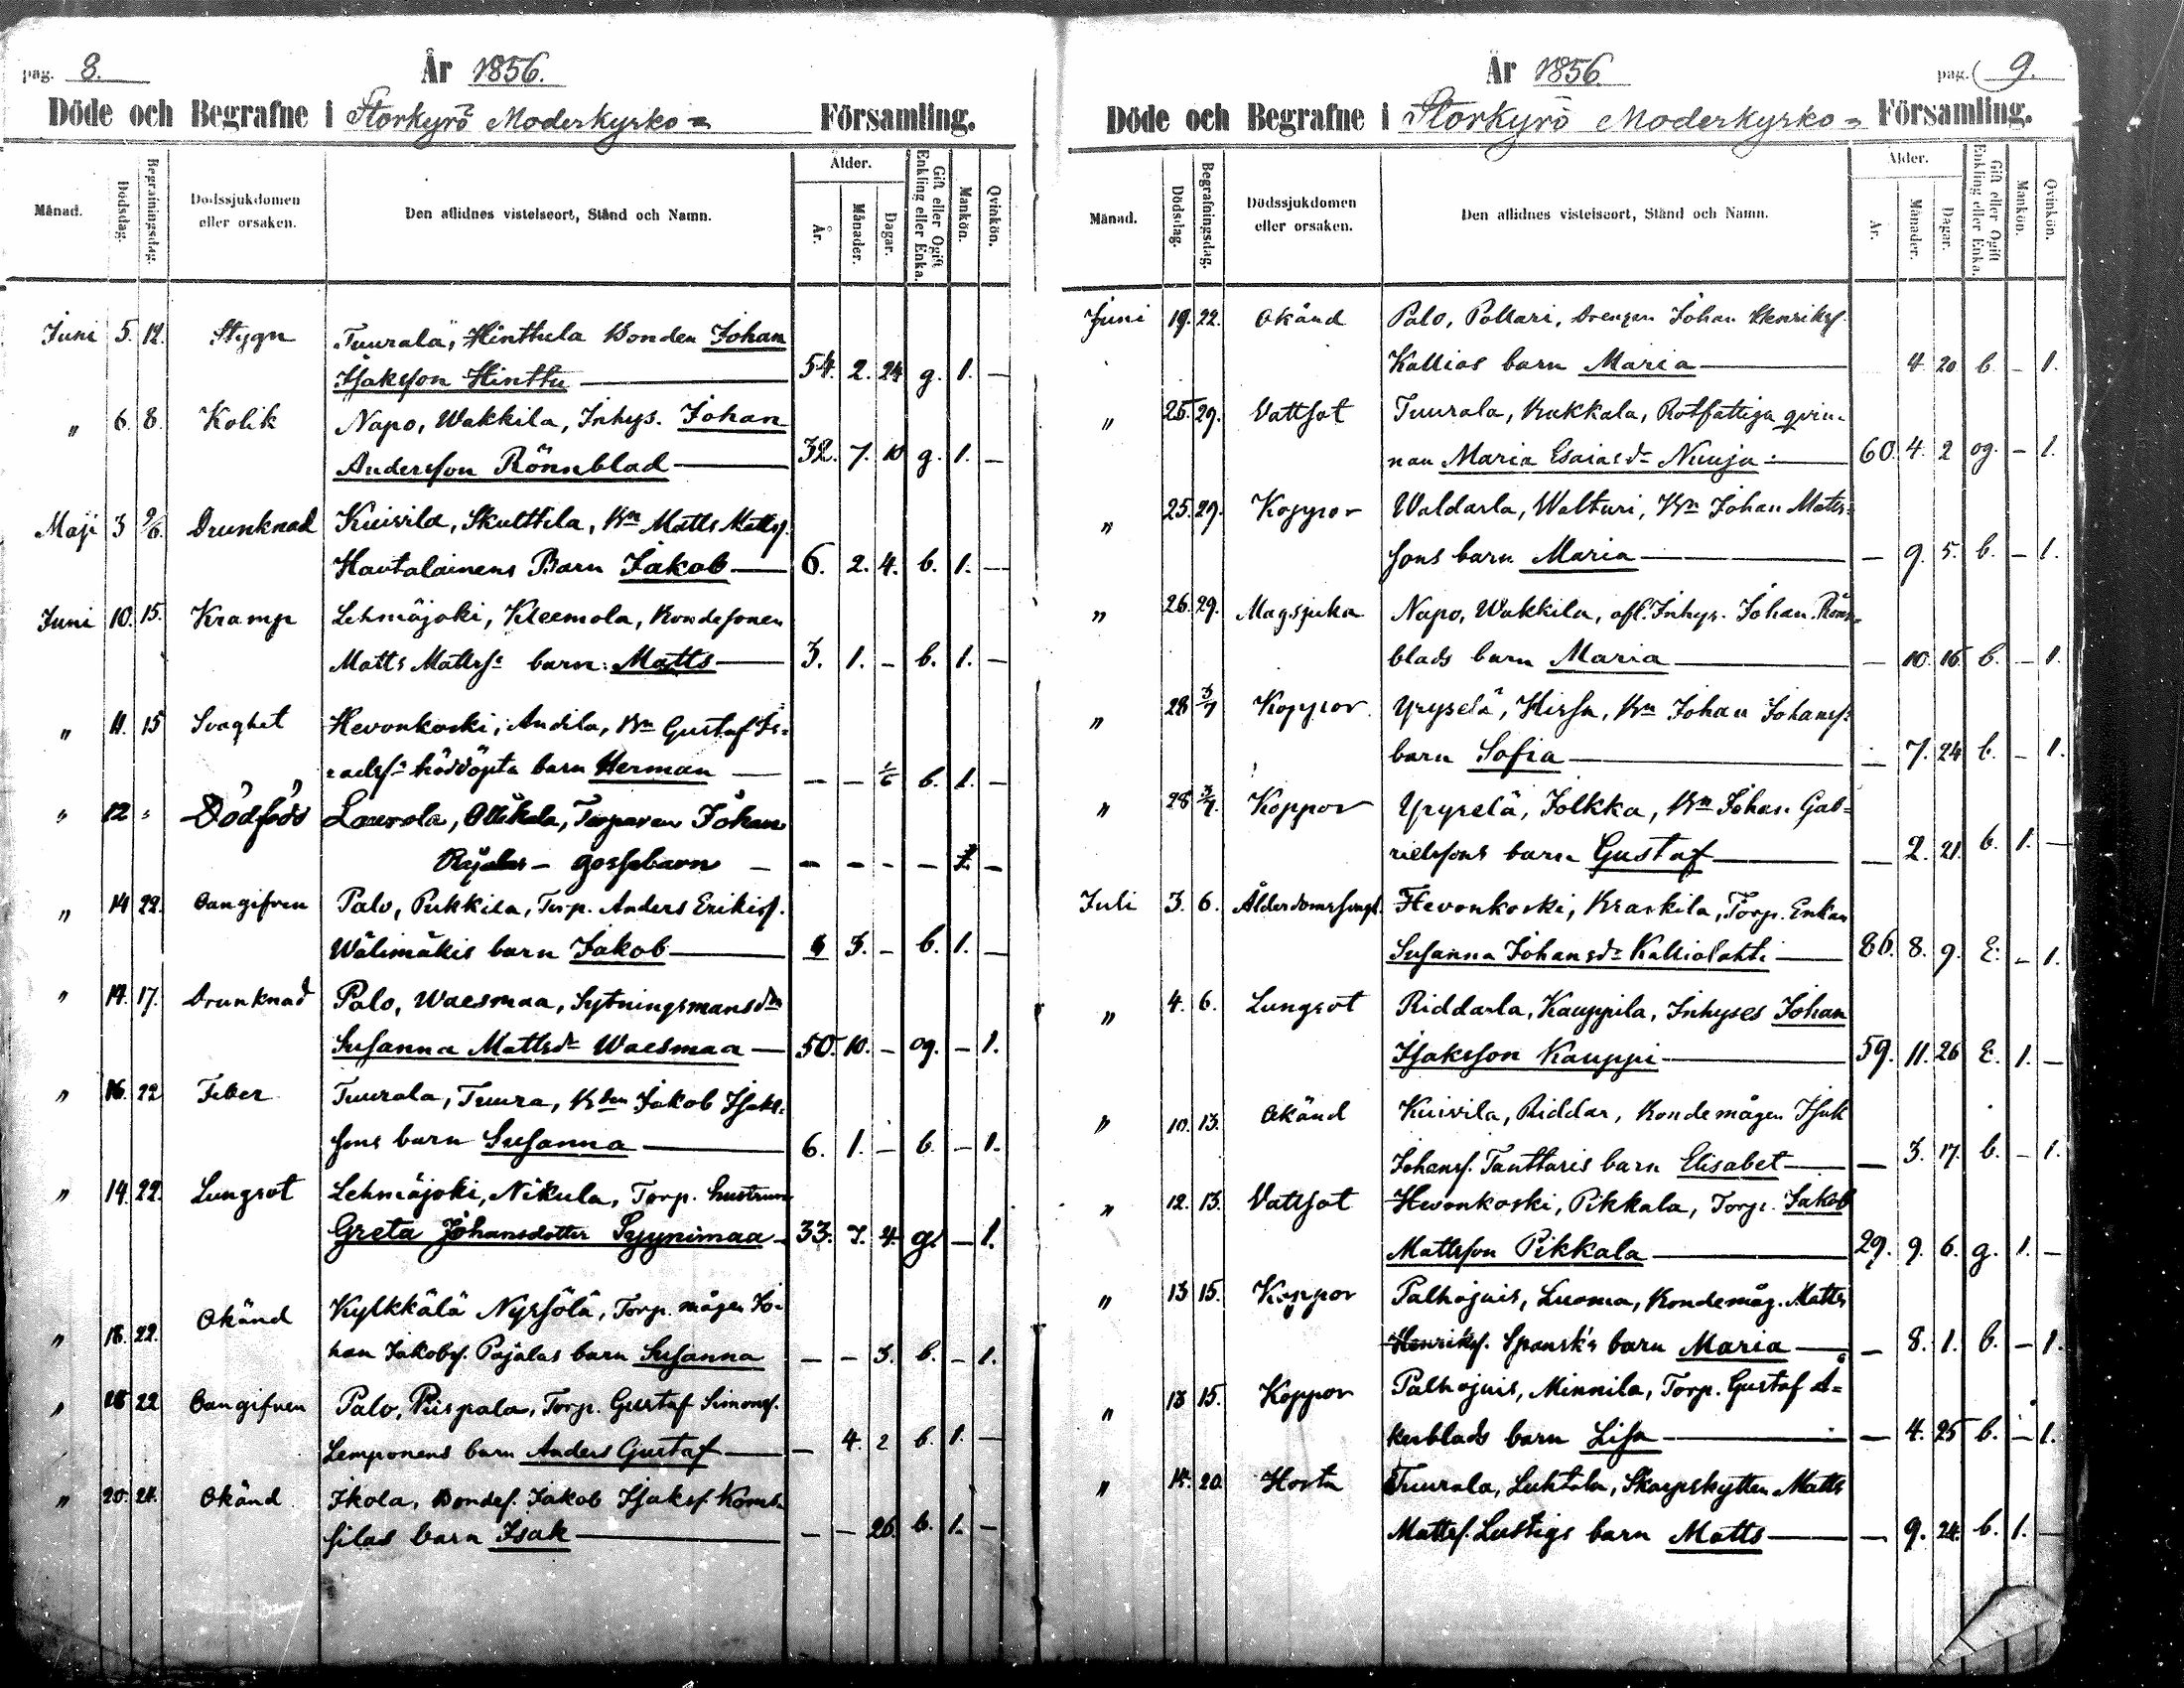 pag. 8.
År 1856.
Döde och Begrafne i Storkyrö Moderkyrko= Församling.
Månad. Dödsdag. Begrafningsdag. Dödssjukdomen eller orsaken. Den aflidnes vistelseort, Stånd och Namn. Ålder. År. Månader. Dagar. Gift eller Ogift Enkling eller Enka. Mankön. Qvinkön.
Juni 5. 12. Stygn Tuurala, Hinttula Bonden Johan
Isaksson Hinttu 54. 2. 24 g. 1. —
" 6. 8. Kolik Napo, Wakkila, Inhys. Johan
Andersson Rönnblad 32. 7. 10 g. 1. —
Maji 3 9/6. Drunknad Kuivila, Skulttila, Bn Matts Mattss.
Hautalainens Barn Jakob — 6. 2. 4. b. 1. —
Juni 10. 15. Kramp Lehmäjoki, Kleemola, Bondesonen
Matts Mattss: barn: Matts — 3. 1. — b. 1. —
" 11. 15 Svaghet Hevonkoski, Andila, Bn Gustaf Is=
raelss: nöddöpta barn Herman — — — 1/6 b. 1. —
" 12 " Dödföds Laurola, Ollikala, Torparen Johan
Rajalas — gossebarn — — — — — 1. —
" 14 22. Oangifven Palo, Pukkila, Torp. Anders Erikss.
Wälimäkis barn Jakob — 3. — b. 1. —
" 14. 17. Drunknad Palo, Waesmaa, Sytningsmansdn
Susanna Mattsdr Waesmaa — 50. 10. — og. — 1.
" 16. 22 Feber Tuurala, Tuura, Bden Jakob Isaks=
sons barn Susanna — 6. 1. — b. — 1.
" 14. 22. Lungsot Lehmäjoki, Nikula, Torp. hustrun
Greta Johansdotter Syynimaa — 33. 7. 4. g. — 1.
Okänd Kylkkälä Nyrsölä, Torp. mågen Jo-
" 18. 22. han Jakobs. Pajalas barn Susanna — — 3. b. — 1.
" 18 22 Oangifven Palo, Piispala, Torp. Gustaf Simons.
Lemponens barn Anders Gustaf — — 4. 2 b. 1. —
" 20. 24. Okänd Ikola, Bondes. Jakob Isakss.
silas barn Isak — — — 26. b. 1. —
År 1856
pag. 9.
Döde och Begrafne i Storkyrö Moderkyrko= Församling.
Månad. Dödsdag. Begrafningsdag. Dödssjukdomen eller orsaken. Den aflidnes vistelseort, Stånd och Namn. Ålder. År. Månader. Dagar. Gift eller Ogift Enkling eller Enka. Mankön. Qvinkön.
Juni 19. 22. Okänd Palo, Pollari, Drengen Johan Henrikss.
Kallios barn Maria — 4 20 b. — 1.
" 25. 29. Vattsot Tuurala, Kukkala, Rotfattiga qvin-
nan Maria Esaiasdr Nuuja — 60. 4. 2 og. — 1.
" 25. 29. Koppor Waldarla, Walturi, Bn Johan Matts=
sons barn Maria — — 9. 5. b. — 1.
" 26. 29. Magsjuka Napo, Wakkila, afl. Inhys. Johan Rönn=
blads barn Maria — — 10. 16 b. — 1.
" 28 3/7 Koppor Yryselä, Hirsu, Bn Johan Johanss:
barn Sofia — — 7. 24 b. — 1.
" 28 3/7. Koppor Yryselä, Jolkka, Bn Johan Gab=
rielssons barn Gustaf — — 2. 21. b. 1. —
Juli 3. 6. Ålderdomssvagh. Hevonkoski, Kraskila, Torp. Enkan
Susanna Johansdr Kalliolahti — 86. 8. 9. E. — 1.
" 4. 6. Lungsot Riddarla, Kauppila, Inhyses Johan
Isaksson Kauppi — 59. 11. 26 E. 1. —
" 10. 13. Okänd Kuivila, Riddar, Bondemågen Isak
Johanss. Tanttaris barn Elisabet — — 3. 17. b. — 1.
" 12. 13. Vattsot Hevonkoski, Pikkala, Torp. Jakob
Mattsson Pikkala — 29. 9. 6. g. 1. —
" 13 15. Koppor Palhojais, Luoma, Bondemåg. Matts
Henrikss. Spansk's barn Maria — — 8. 1. b. — 1.
" 13 15. Koppor Palhojais, Minnila, Torp. Gustaf Å=
kerblads barn Lisa — — 4. 25 b. — 1.
" 14. 20. Hosta Tuurala, Luhtala, Skarpskytten Matts
Mattss. Lustigs barn Matts — — 9. 24. b. 1. —